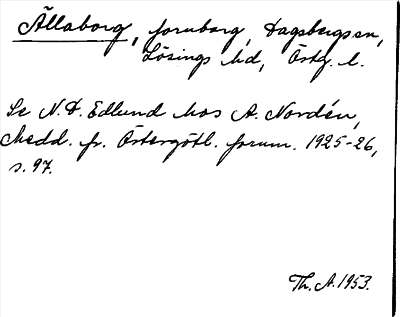 Ällaborg, fornborg, Dagsbergs sn,
Lösings hd, Östg. l.
Se N. D. Edlund hos A. Nordén,
Medd. fr. Östergötl. fornm. 1925-26,
s. 97.
Th. A. 1953.